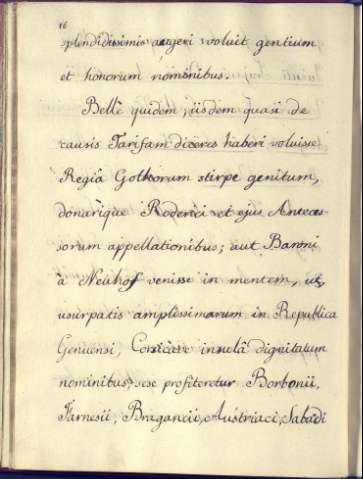 16
splendidissimis augeri voluit gentium
et honorum nominibus.
Bellè quidem; iisdem quasi de
causis Tarifam diceres haberi voluisse
Regiâ Gothorum stirpe genitum,
donarique Roderici vet ejus Anteces-
sorum appellationibus; aut Baroni
à Neuhof venisse in mentem, ut,
usurpatis amplissimarum in Republica
Genuensi, Corsicave insulâ dignitatum
nominibus, sese profiteretur Borbonii,
Farnesii, Bragancii, Austriaci, Sabadi